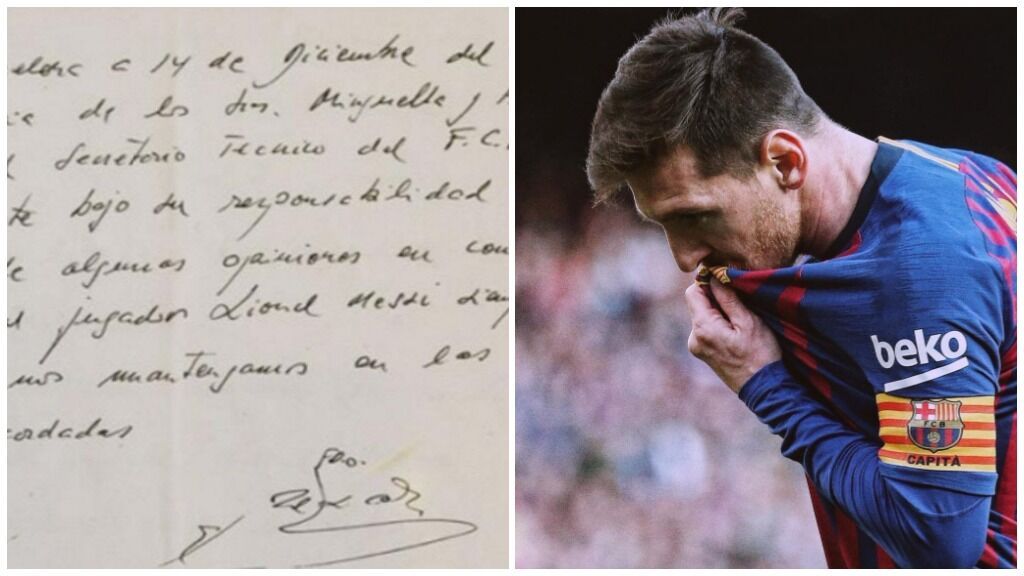 elona a 14 de Diciembre del
de los Sres. Minguella y
Secretario Tecnico del F.C.
bajo su responsabilidad
algunas opiniones en con
jugador Lionel Messi
nos mantengamos en las
cordadas
Fdo.
beko
FCB
CAPITÀ